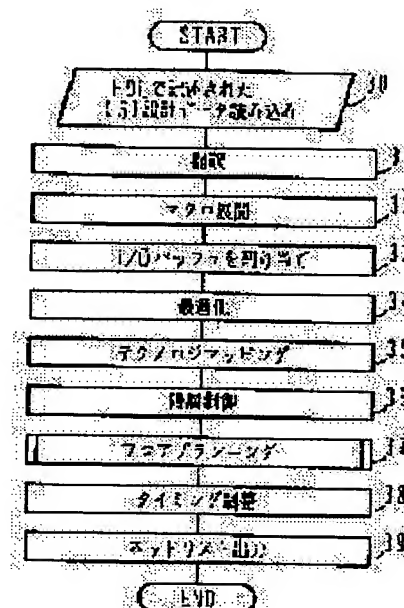 START
30
HDLで記述された
LSI設計データ読み込み
翻訳
3
マクロ展開
3
I/Oバッファを割り当て
3
最適化
34
テクノロジマッピング
35
階層制御
フロアプランニング
タイミング調整
38
ネットリスト出力
39
END